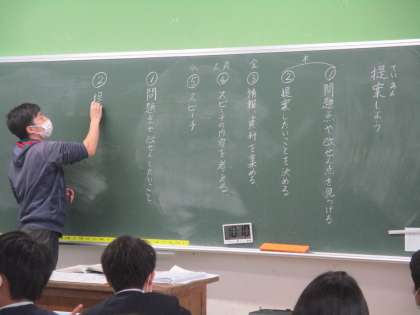 ていあん
提案しよう
①問題点や改ぜん点を見つける
②提案したいことを決める
③情報・資料を集める
④スピーチの内容を考える。
⑤スピーチ
①問題点や改ぜんしたいこと。
②提